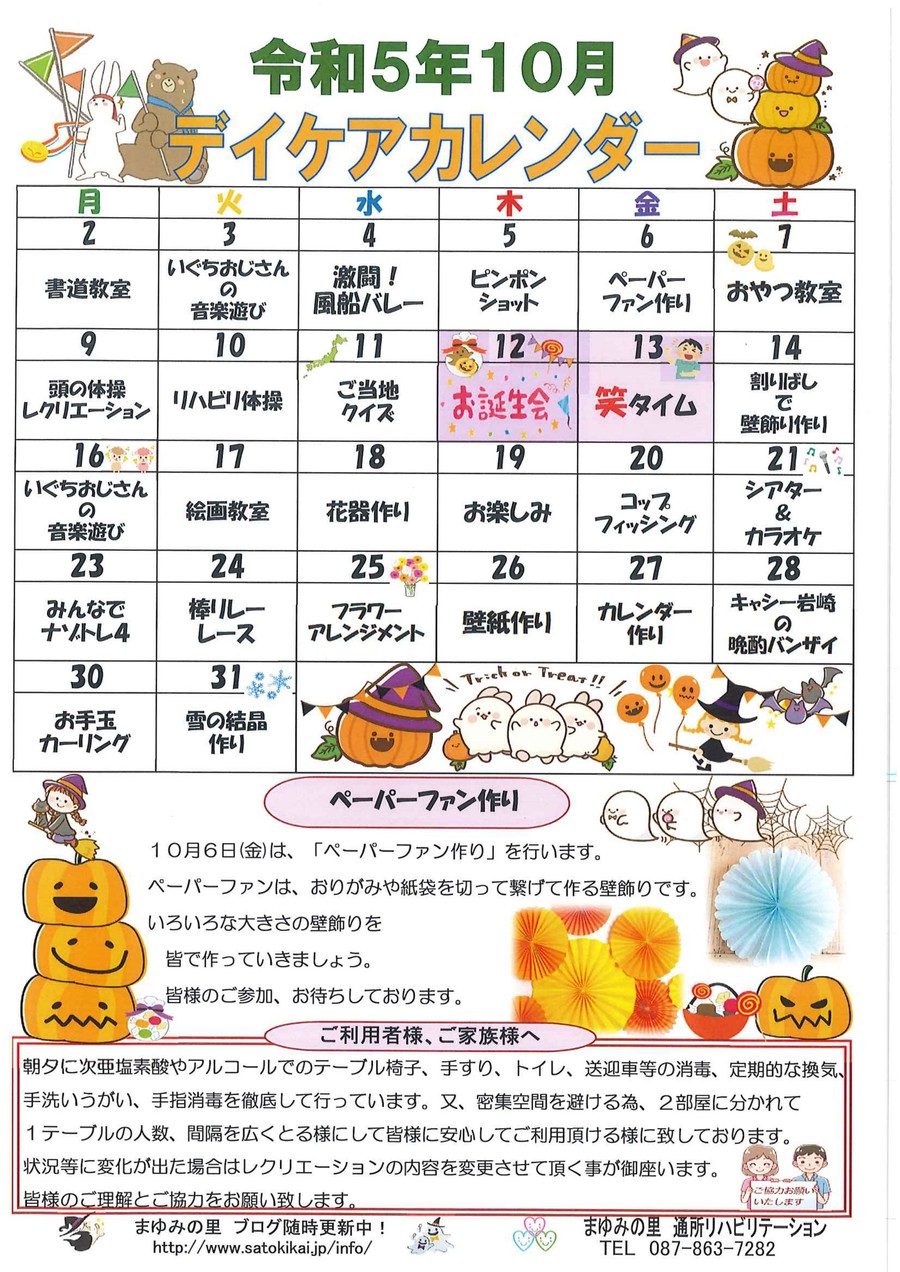 令和5年10月
デイケアカレンダー
月 火 水 木 金 土
2 3 4 5 6 7
書道教室
いぐちおじさん
の
音楽遊び
激闘！
風船バレー
ピンポン
ショット
ペーパー
ファン作り
おやつ教室
9 10 11 12 13 14
頭の体操
レクリエーション
リハビリ体操
ご当地
クイズ
お誕生会
笑タイム
割りばし
で
壁飾り作り
16 17 18 19 20 21
いぐちおじさん
の
音楽遊び
絵画教室
花器作り
お楽しみ
コップ
フィッシング
シアター
&
カラオケ
23 24 25 26 27 28
みんなで
ナゾトレ4
棒リレー
レース
フラワー
アレンジメント
壁紙作り
カレンダー
作り
キャシー岩崎
の
晩酌バンザイ
30 31
お手玉
カーリング
雪の結晶
作り
Trick or Treat!!
ペーパーファン作り
１０月６日(金)は、「ペーパーファン作り」を行います。
ペーパーファンは、おりがみや紙袋を切って繋げて作る壁飾りです。
いろいろな大きさの壁飾りを
皆で作っていきましょう。
皆様のご参加、お待ちしております。
ご利用者様、ご家族様へ
朝夕に次亜塩素酸やアルコールでのテーブル椅子、手すり、トイレ、送迎車等の消毒、定期的な換気、
手洗いうがい、手指消毒を徹底して行っています。又、密集空間を避ける為、２部屋に分かれて
１テーブルの人数、間隔を広くとる様にして皆様に安心してご利用頂ける様に致しております。
状況等に変化が出た場合はレクリエーションの内容を変更させて頂く事が御座います。
皆様のご理解とご協力をお願い致します。
ご協力お願い
いたします
まゆみの里 ブログ随時更新中！
http://www.satokikai.jp/info/
まゆみの里 通所リハビリテーション
TEL 087-863-7282